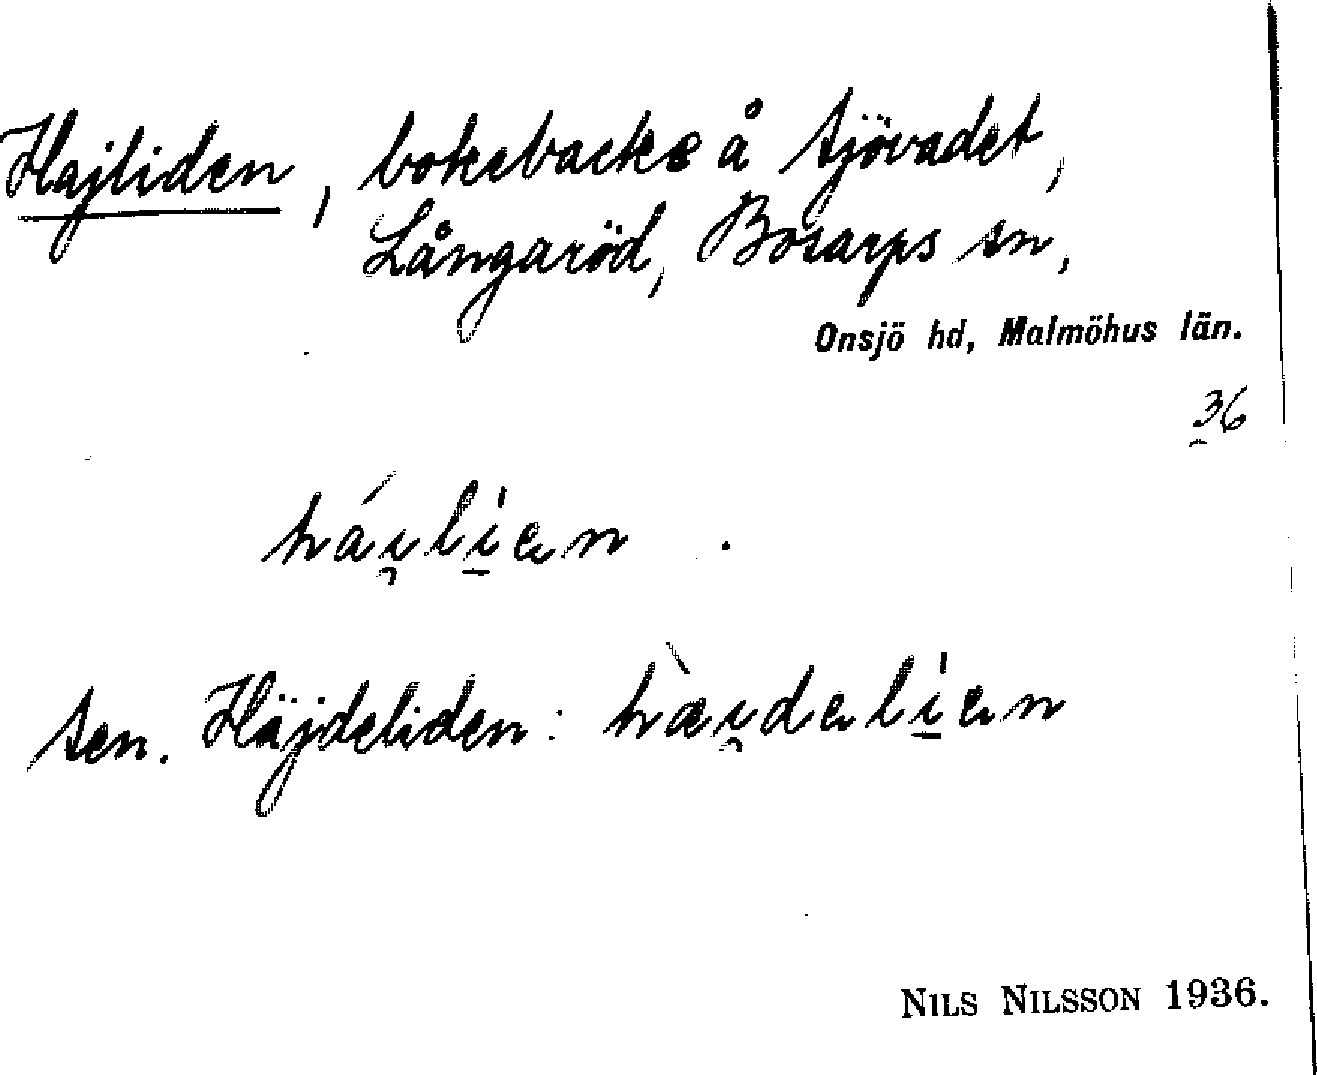 Hajliden, bokebacke å Sjövadet,
Långaröd, Bosarps sn,
Onsjö hd, Malmöhus län.
36
há i̯ lìən
sen. Häjdeliden: hæ̀i̯dəlìən
NILS NILSSON 1936.